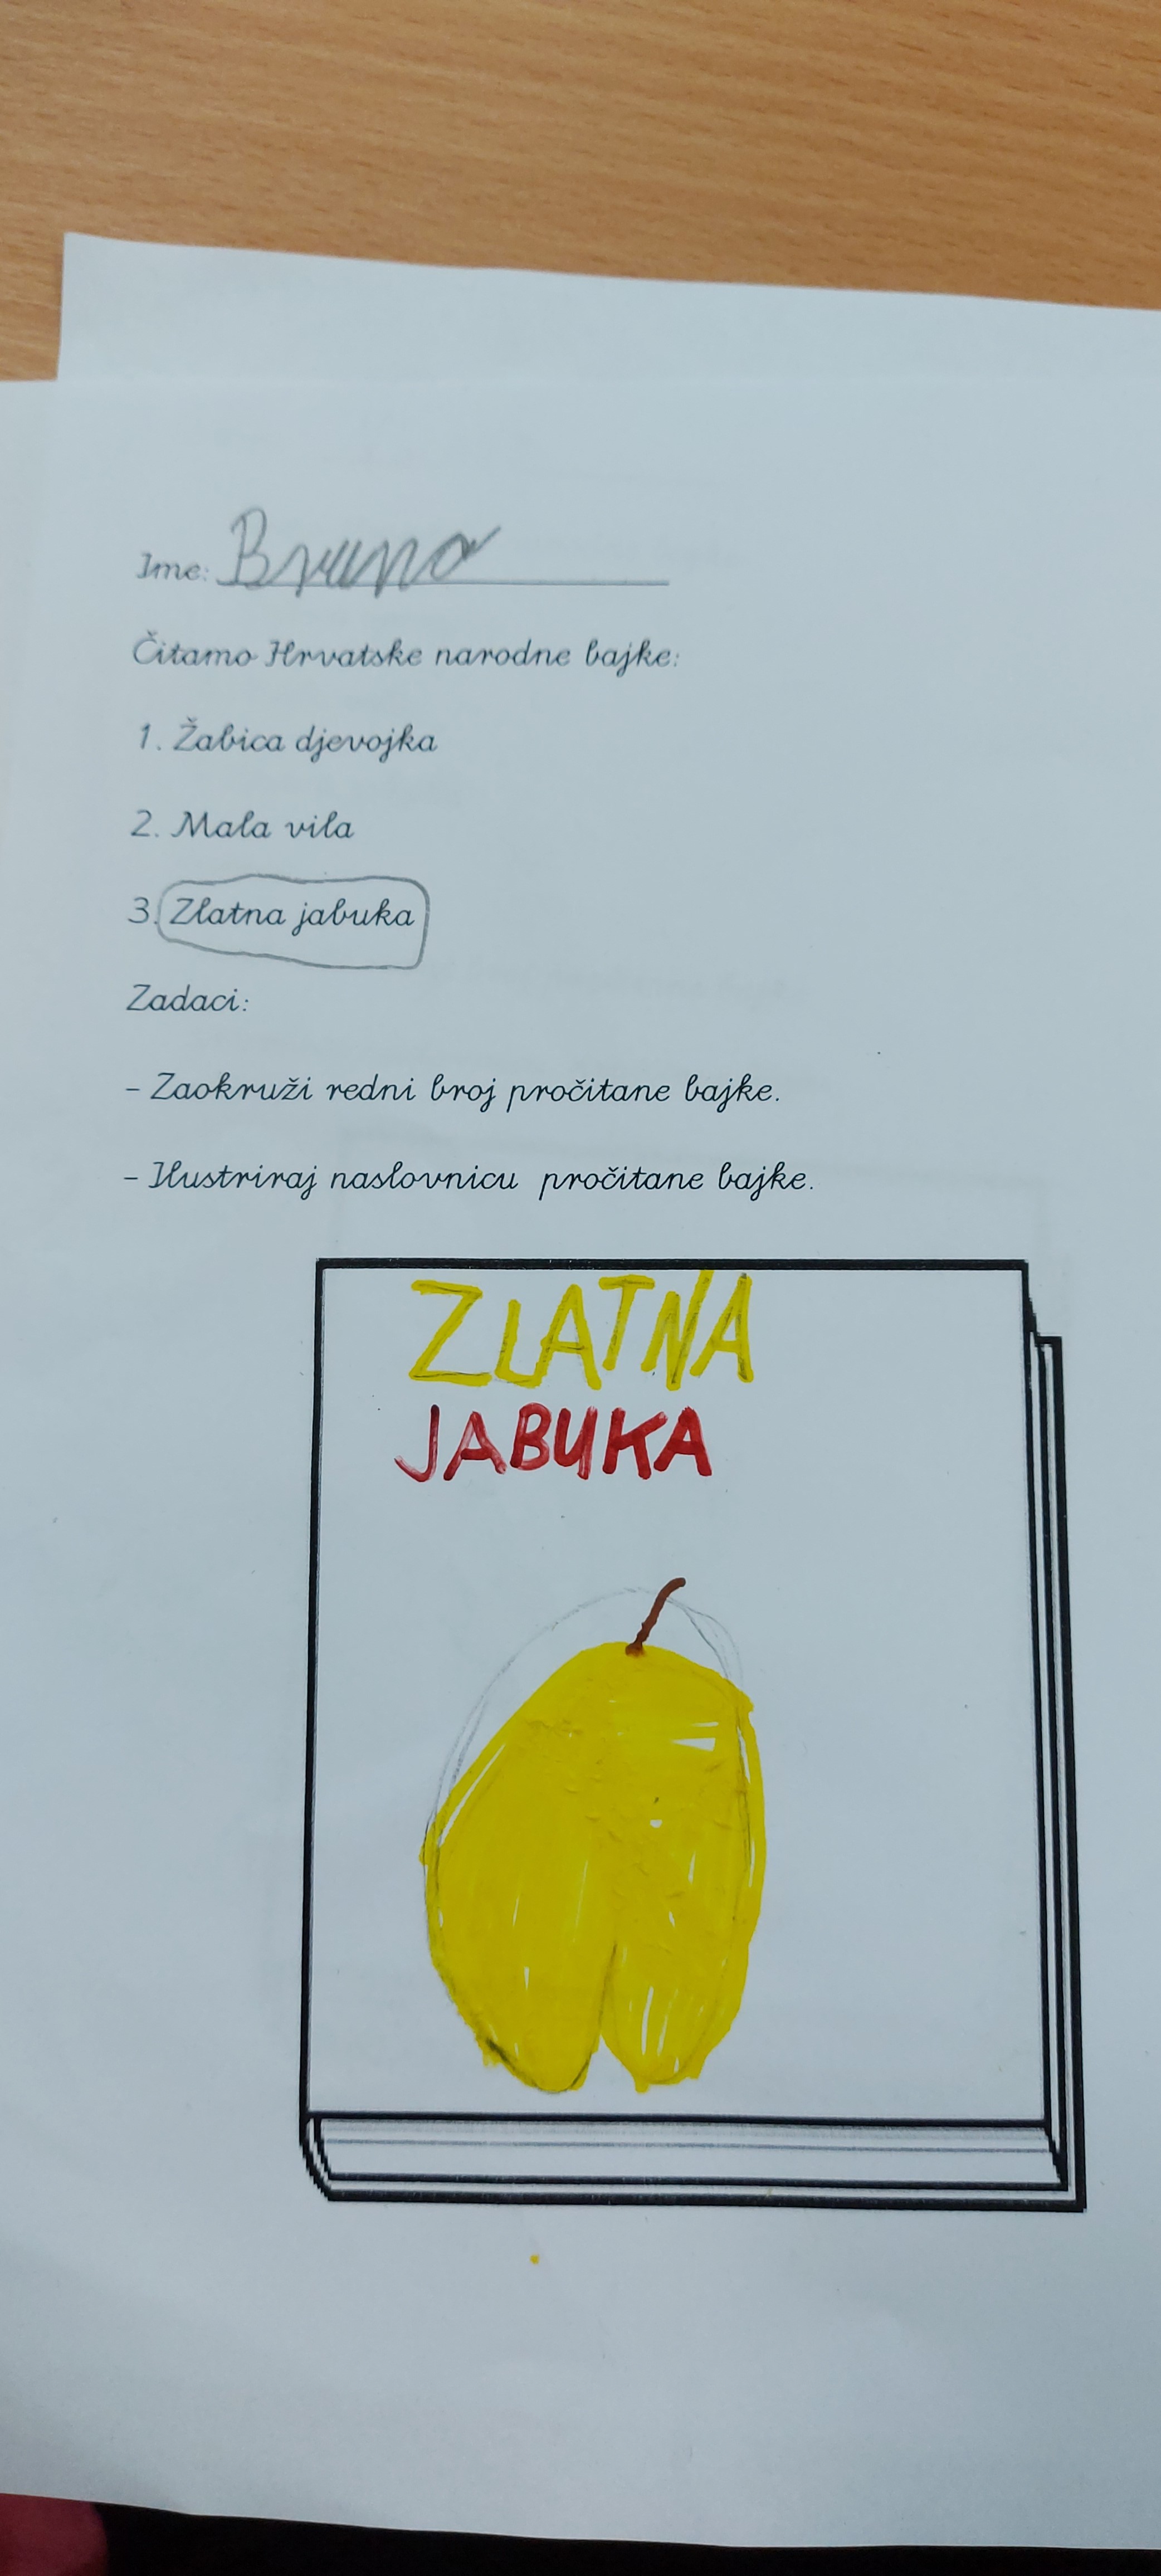 Ime: Bruno
Čitamo Hrvatske narodne bajke:
1. Žabica djevojka
2. Mala vila
3. Zlatna jabuka
Zadaci:
- Zaokruži redni broj pročitane bajke.
- Ilustriraj naslovnicu pročitane bajke.
ZLATNA
JABUKA